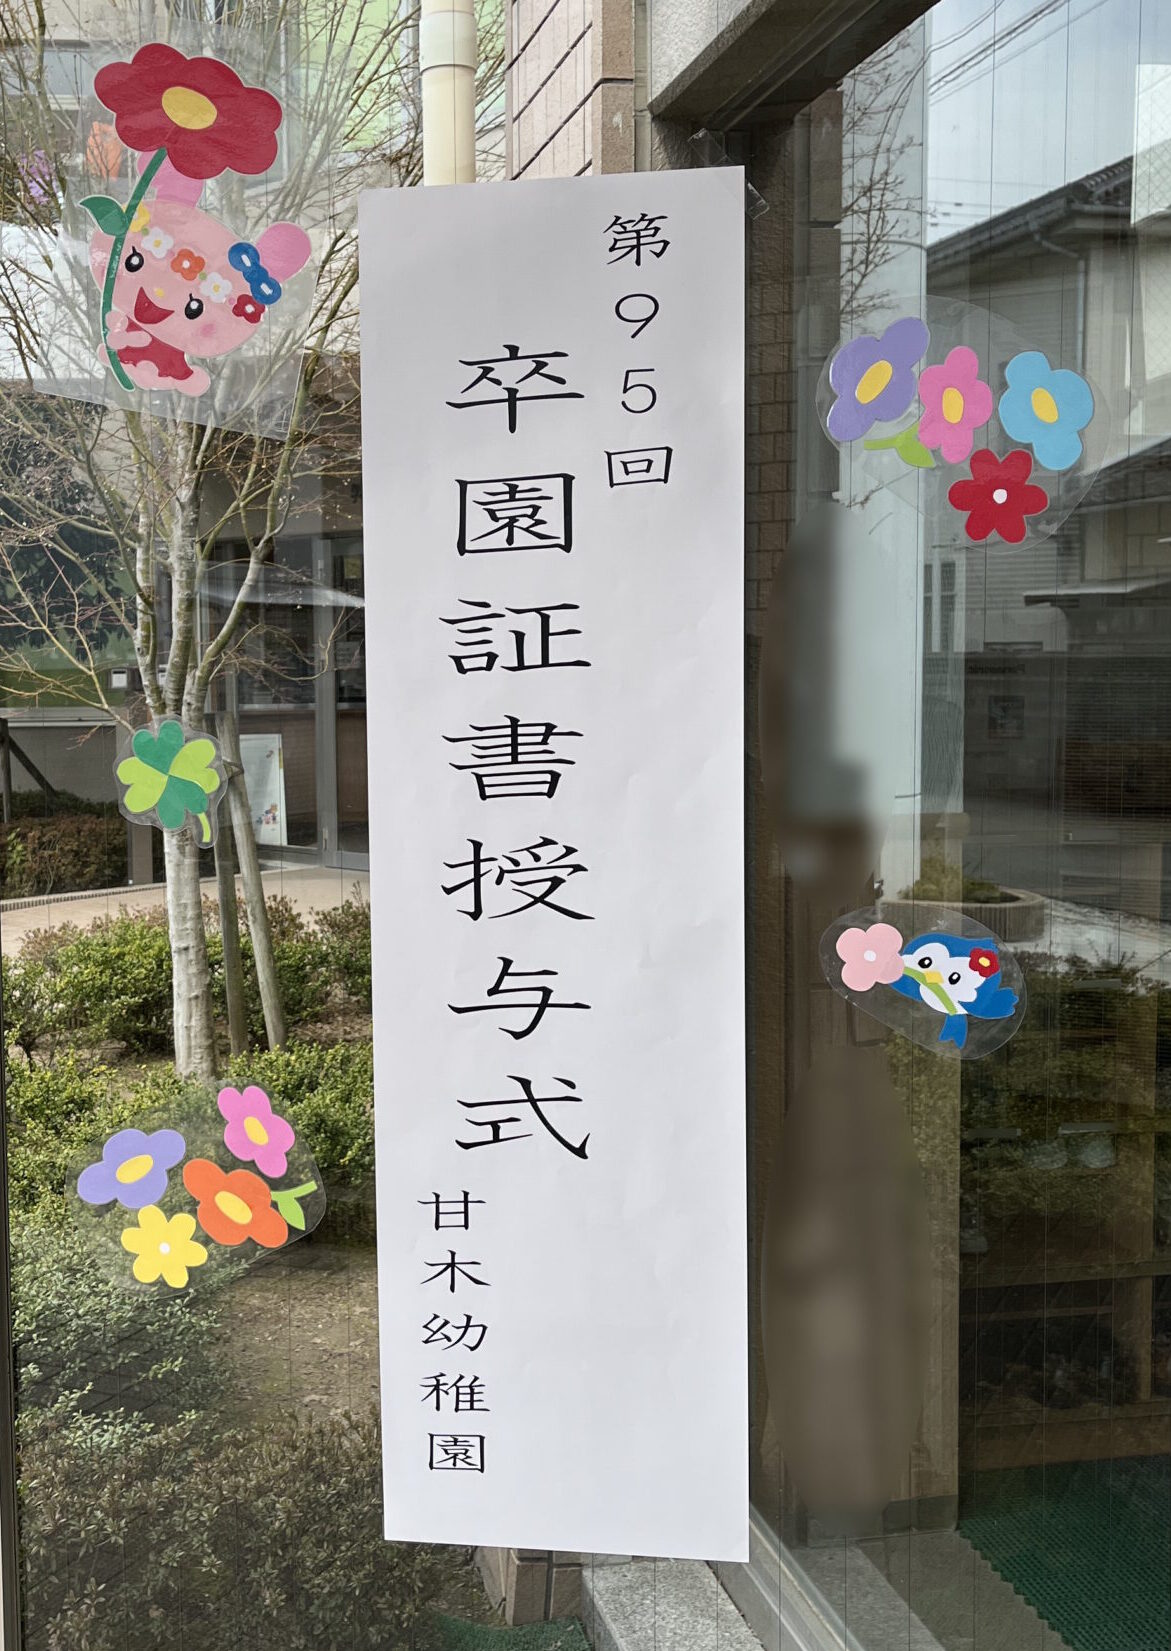 第95回
卒園証書授与式
甘木幼稚園